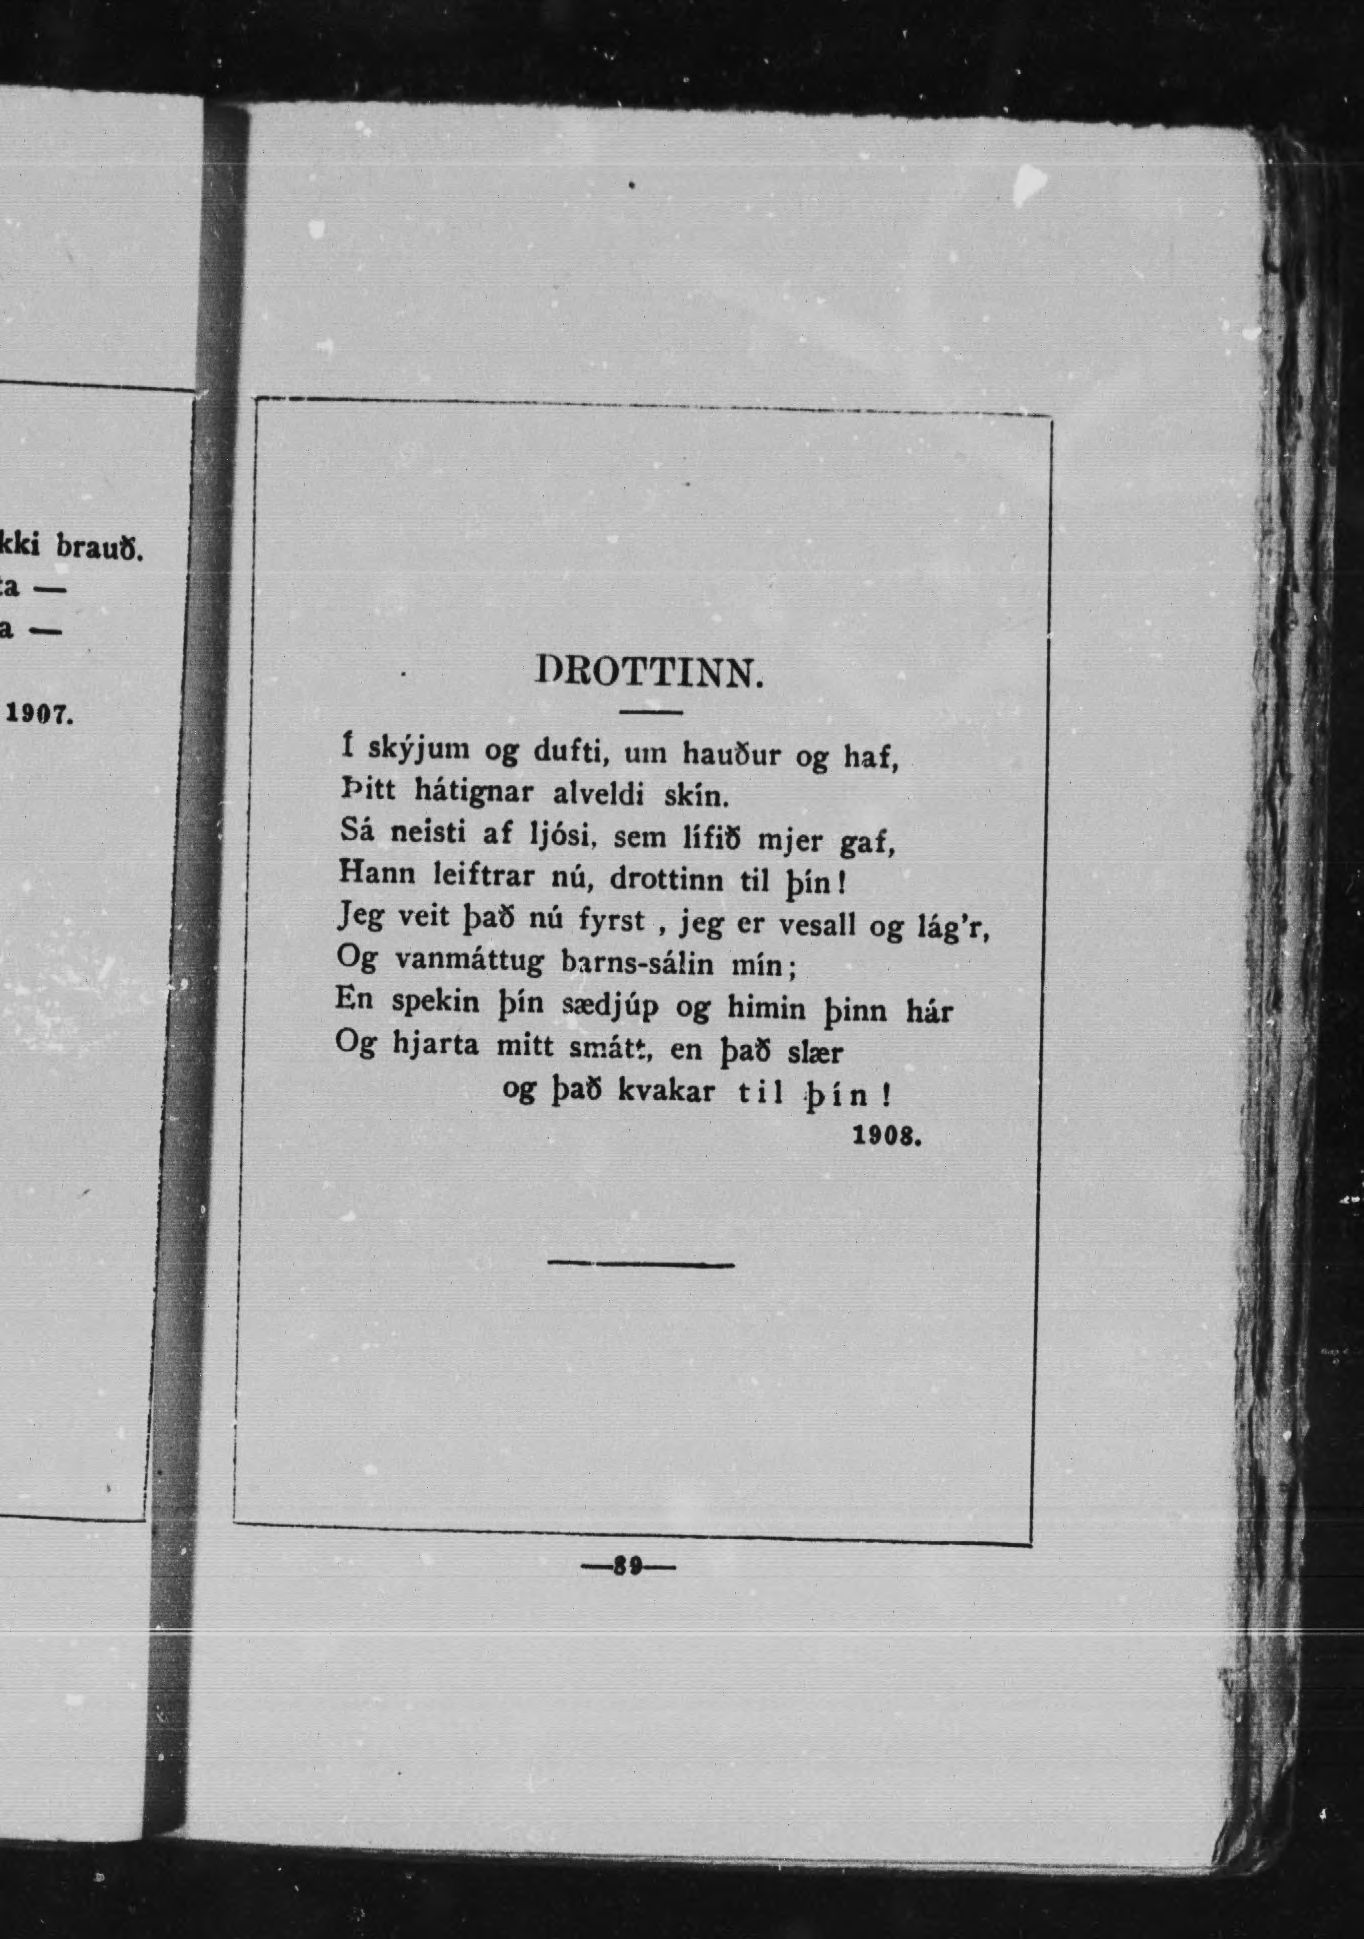 brauð.
—
—
1907.
DROTTINN.
Í skýjum og dufti, um hauður og haf,
Þitt hátignar alveldi skín.
Sá neisti af ljósi, sem lífið mjer gaf,
Hann leiftrar nú, drottinn til þín!
Jeg veit það nú fyrst , jeg er vesall og lág'r,
Og vanmáttug barns-sálin mín;
En spekin þín sædjúp og himin þinn hár
Og hjarta mitt smátt, en það slær
og það kvakar til þín!
1908.
—89—